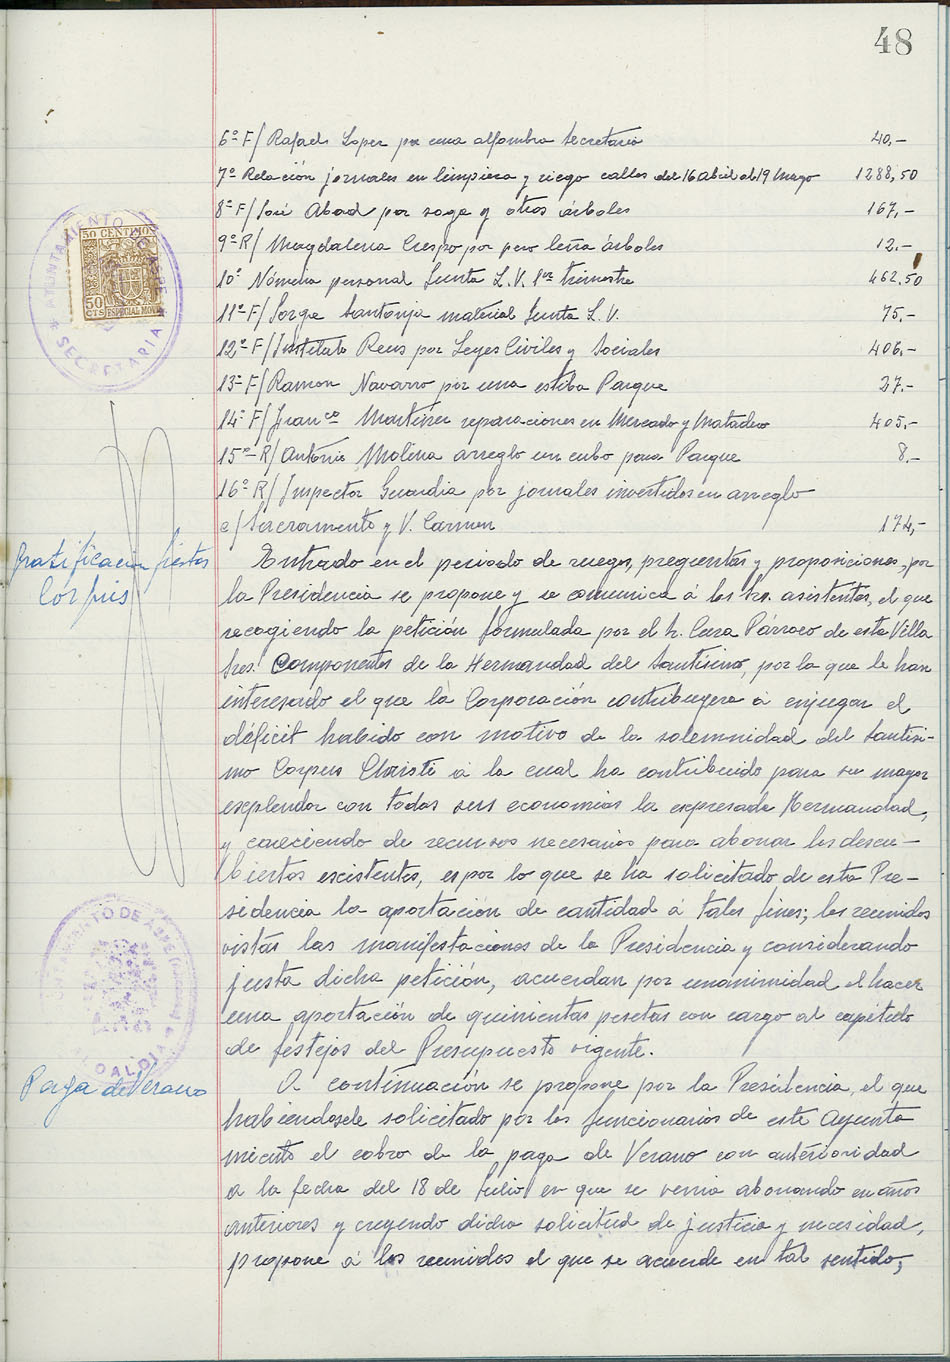 48
6º F/ Rafael Lopez por una alfombra Secretaria 40,-
7º Relación jornales en limpieza y riego calles del 16 Abril al 19 Mayo 1288,50
8º F/ José Abad por soga y otros árboles 167,-
9º R/ Magdalena Crespo por leña árboles 12.-
10º Nómina personal Junta L. V. 1er trimestre 462,50
11º F/ Jorge Santonja material Junta L. V. 75,-
12º F/ Instituto Reus por Leyes Civiles y Sociales 406,-
13º F/ Ramon Navarro por una estiba Parque 27.-
14º F/ Franco Martínez reparaciones en Mercado y Matadero 405,-
15º R/ Antonio Molina arreglo un cubo para Parque 8,-
16º R/ Inspector Guardia por jornales invertidos en arreglo
c/ Sacramento y V. Carmen 174,-
Gratificacion fiestas
Corpus
Entrado en el periodo de ruegos, preguntas y proposiciones, por
la Presidencia se propone y se comunica á los Sres. asistentes, el que
recogiendo la petición formulada por el Sr. Cura Párroco de esta Villa
Sres. Componentes de la Hermandad del Santísimo, por la que le han
interesado el que la Corporación contribuyera á enjugar el
déficit habido con motivo de la solemnidad del Santísi-
mo Corpus Christi á la cual ha contribuido para su mayor
esplendor con todas sus economias la expresada Hermandad,
y careciendo de recursos necesarios para abonar los descu-
biertos escistentes, es por lo que se ha solicitado de esta Pre-
sidencia la aportación de cantidad á tales fines; los reunidos
vistas las manifestaciones de la Presidencia y considerando
justa dicha petición, acuerdan por unanimidad el hacer
una aportación de quinientas pesetas con cargo al capítulo
de festejos del Presupuesto vigente.
Paga de Verano
A continuación se propone por la Presidencia, el que
habiendosele solicitado por los funcionarios de este Ayunta
miento el cobro de la paga de Verano con anterioridad
a la fecha del 18 de Julio en que se venia abonando en años
anteriores y creyendo dicha solicitud de justicia y necesidad,
propone á los reunidos el que se acuerde en tal sentido;
AYUNTAMIENTO DE ASPE
* SECRETARIA *
50 CENTIMOS
50 CTS ESPECIAL MOVIL
AYUNTAMIENTO DE ASPE (Alicante)
ALCALDIA